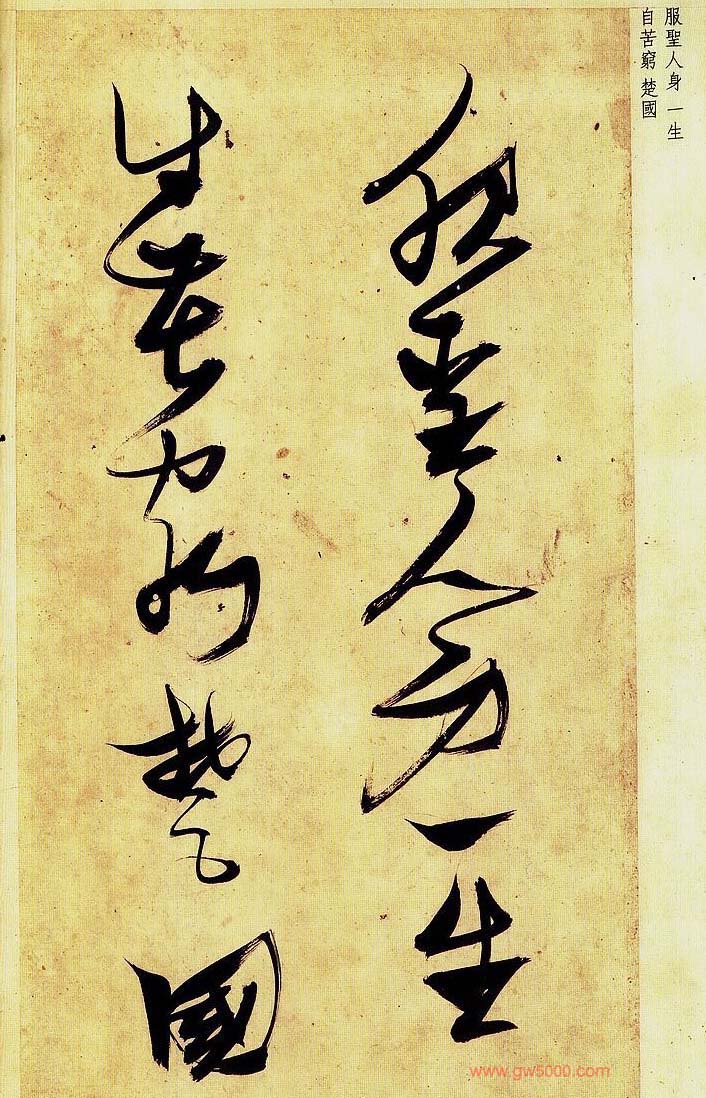 服聖人身 一生
自苦窮 楚國
服聖人身一生
自苦窮楚國
www.gw5000.com